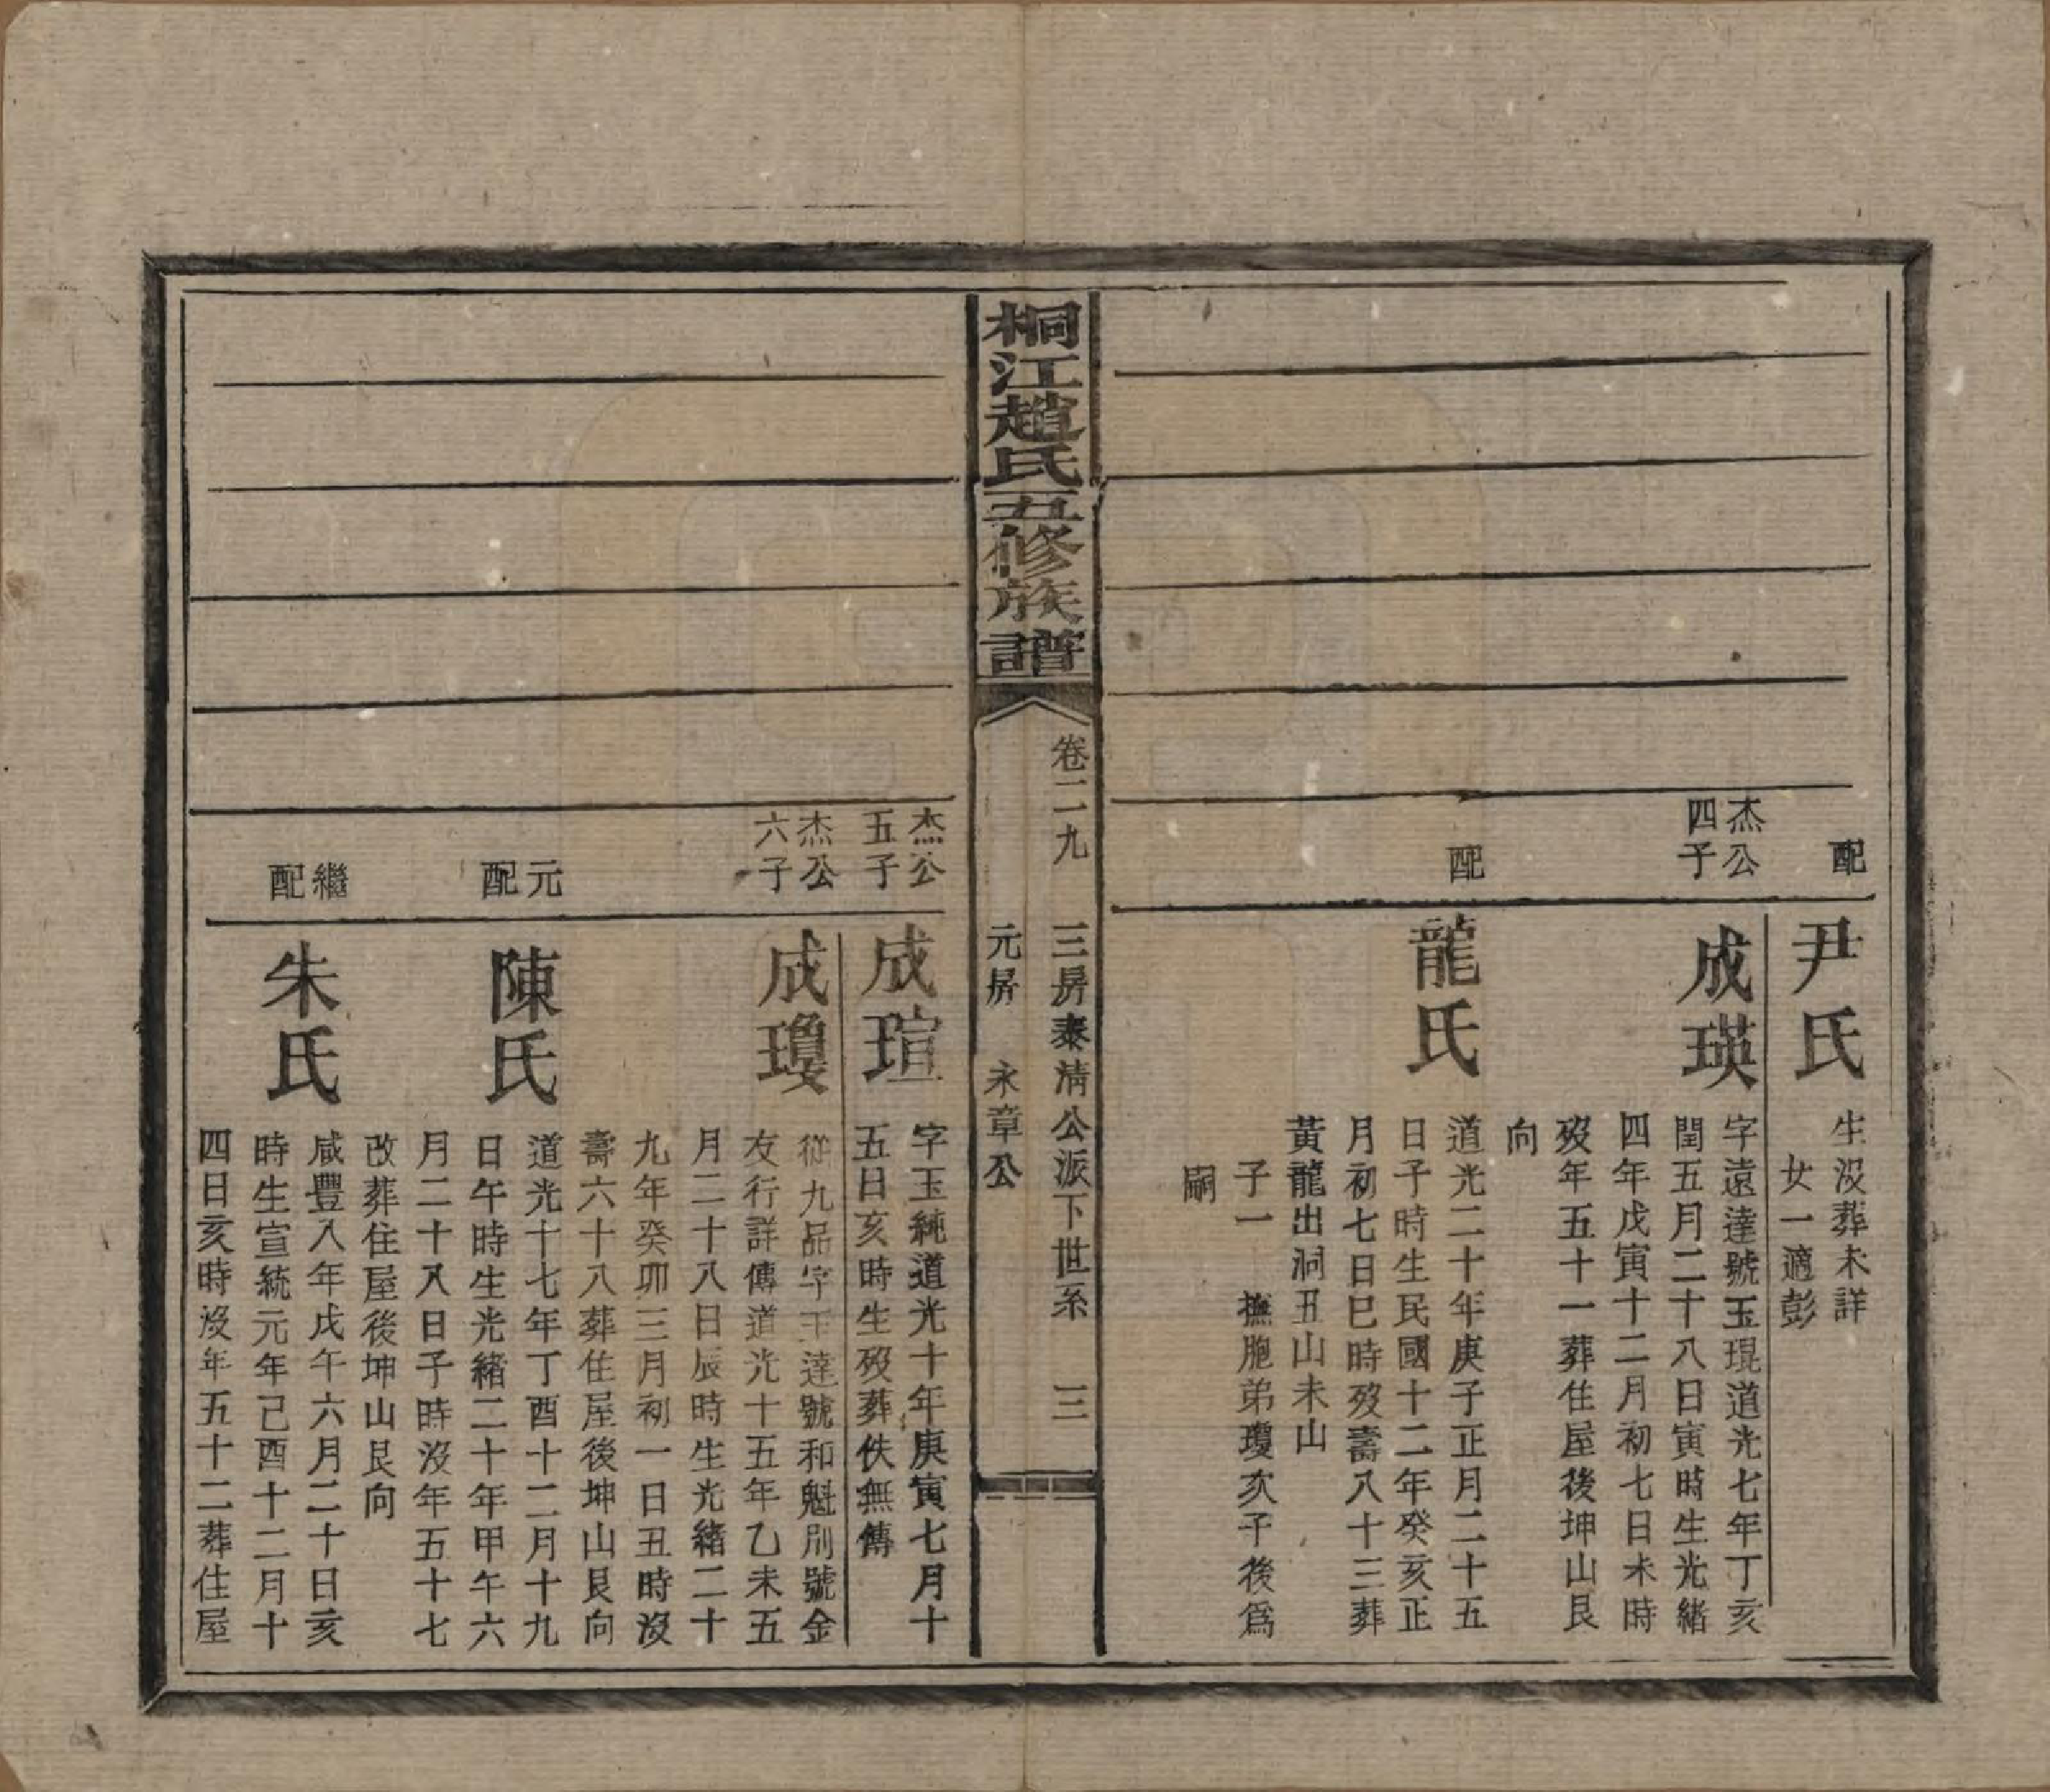 配
尹氏
生沒葬未詳
女一適彭
杰公
四子
成瑛
字遠達號玉琨道光七年丁亥
閏五月二十八日寅時生光緒
四年戊寅十二月初七日未時
歿年五十一葬住屋後坤山艮
向
配
龍氏
道光二十年庚子正月二十五
日子時生民國十二年癸亥正
月初七日巳時歿壽八十三葬
黃龍出洞丑山未山
子一 撫胞弟瓊次子後爲
嗣
桐江趙氏五修族譜
卷二九 三房泰清公派下世系 三
元房 永章公
杰公
五子
成瑄
字玉純道光十年庚寅七月十
五日亥時生歿葬佚無傳
杰公
六子
成瓊
從九品字玉達號和魁別號金
友行詳傳道光十五年乙未五
月二十八日辰時生光緒二十
九年癸卯三月初一日丑時沒
壽六十八葬住屋後坤山艮向
元
配
陳氏
道光十七年丁酉十二月十九
日午時生光緒二十年甲午六
月二十八日子時沒年五十七
改葬住屋後坤山艮向
繼
配
朱氏
咸豐八年戊午六月二十日亥
時生宣統元年己酉十二月十
四日亥時沒年五十二葬住屋